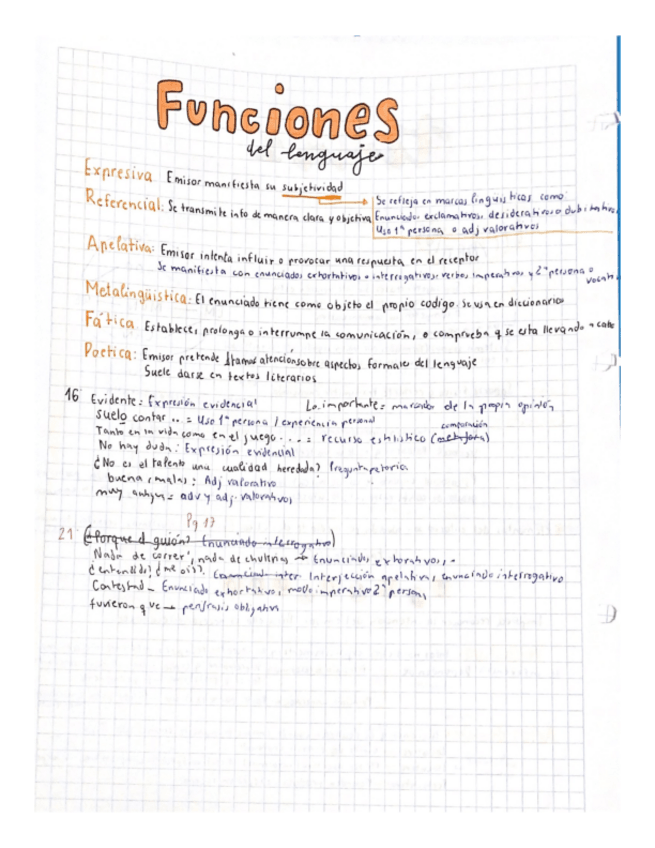 Funciones
del lenguaje
Expresiva Emisor manifiesta su subjetividad
Se refleja en marcas linguisticas como:
Referencial: Se transmite info de manera clara y objetiva
Enunciados exclamativos, desiderativos o dubitativos
Uso 1ª persona o adj valorativos
Apelativa: Emisor intenta influir o provocar una respuesta en el receptor
Se manifiesta con enunciados exhortativos o interrogativos: verbos imperativos y 2ª persona o
vocati
Metalingüistica: El enunciado tiene como objeto el propio codigo. Se usa en diccionarios
Fática Establecer, prolonga o interrumpe la comunicación, o comprueba q se esta llevando a cabo
Poetica: Emisor pretende atención sobre aspectos formales del lenguaje
Suele darse en textos literarios
16 Evidente: Expresión evidencial Lo importante = marcador de la propia opinión
suelo contar .. = Uso 1ª persona / experiencia personal
comparación
Tanto en la vida como en el juego ... = recurso estilistico (metafora)
No hay duda: Expresión evidencial
¿No es el talento una cualidad heredada? Pregunta retorica
buena, malas: Adj valorativo
muy = adv y adj. valorativos
Pg 17
21 (¿Porque el guión? Enunciado interrogativo)
Nada de correr, nada de chulerias → Enunciados exhortativos
¿entendido? ¿me ois?: Interjección apelativa, enunciado interrogativo
Contestad - Enunciado exhortativo, modo imperativo 2ª persona
tuvieron que → perifrasis obligativa